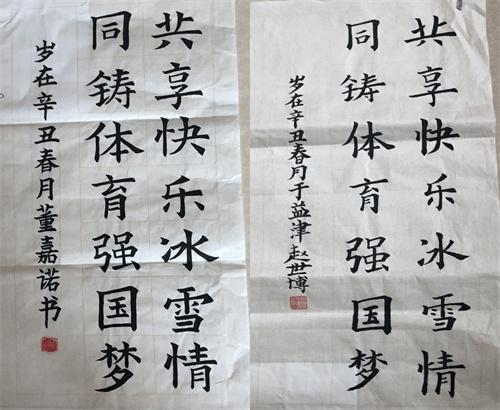 共享快乐冰雪情
同铸体育强国梦
岁在辛丑春月董嘉诺书
共享快乐冰雪情
同铸体育强国梦
岁在辛丑春月于益津赵世博